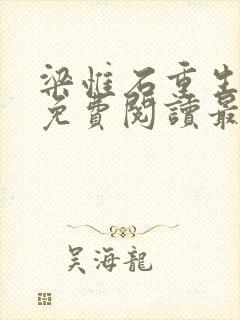 梁惟石重生
免費閱讀最
吴海龍